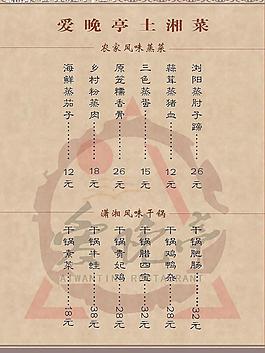 爱晚亭土湘菜
农家风味蒸菜
浏阳蒸肘子蹄 26元
蒜茸蒸猪血 12元
三色蒸蛋 15元
原笼糯香骨 26元
乡村粉蒸肉 18元
海鲜蒸茄子 12元
潇湘风味干锅
干锅肥肠 32元
干锅鸡鸭杂 28元
干锅腊四宝 38元
干锅贵妃鸡 38元
干锅牛蛙 38元
干锅素菜 18元
AIWANTING RESTAURANT